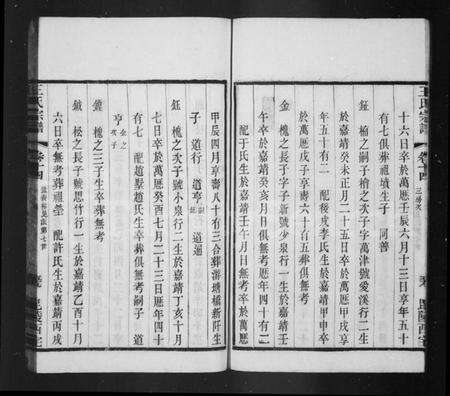 王氏宗譜
卷四
十六日卒於萬歷壬辰六月十三日享年五十
有七俱葬祖墳生子 阿善
鈺 楠之嗣子檜之次子字萬津號愛溪行二生
於嘉靖癸未正月二十五日卒於萬歷甲戌享
年五十有二 配殷戌李氏生於嘉靖甲申卒
於萬歷戊子享壽六十有五葬俱無考
金 槐之長子字子新號少泉行一生於嘉靖壬
午卒於嘉靖癸亥月日俱無考歷年四十有二
配于氏生於嘉靖壬午月日無考卒於萬歷
甲辰四月享壽八十有三合葬游塘橋新阡生
子 道行 道亨 道通
鈺 槐之次子號小泉行二生於嘉靖丁亥十月
七日卒於萬歷癸酉七月二十三日歷年四十
有七 配趙墅趙氏生卒葬俱無考嗣子 道
亨 金之次子
鑵 槐之三子生卒葬無考
鉞 松之長子號思竹行一生於嘉靖乙酉十月
六日卒無考葬祖塋 配許氏生於嘉靖丙戌
王氏宗譜
卷四